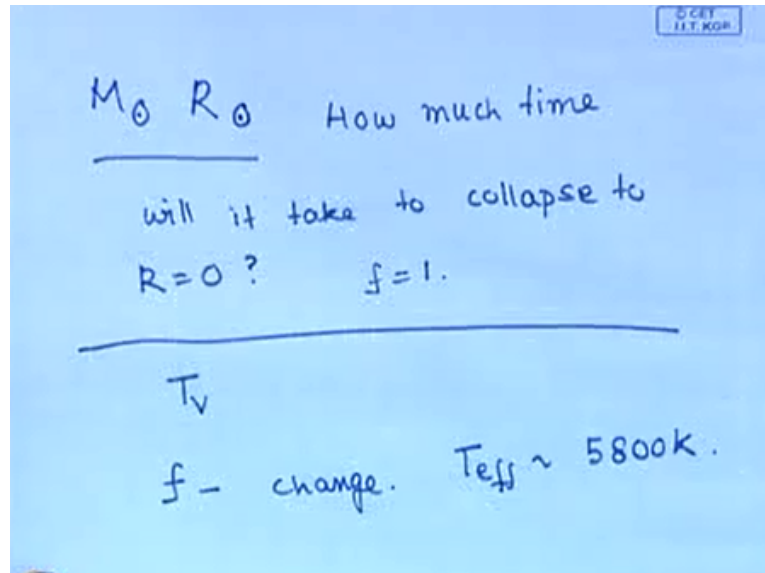 © CET
I.I.T. KGP
M⊙ R⊙ How much time
will it take to collapse to
R = 0 ? f = 1.
Tv
f - change. Teff ~ 5800K.